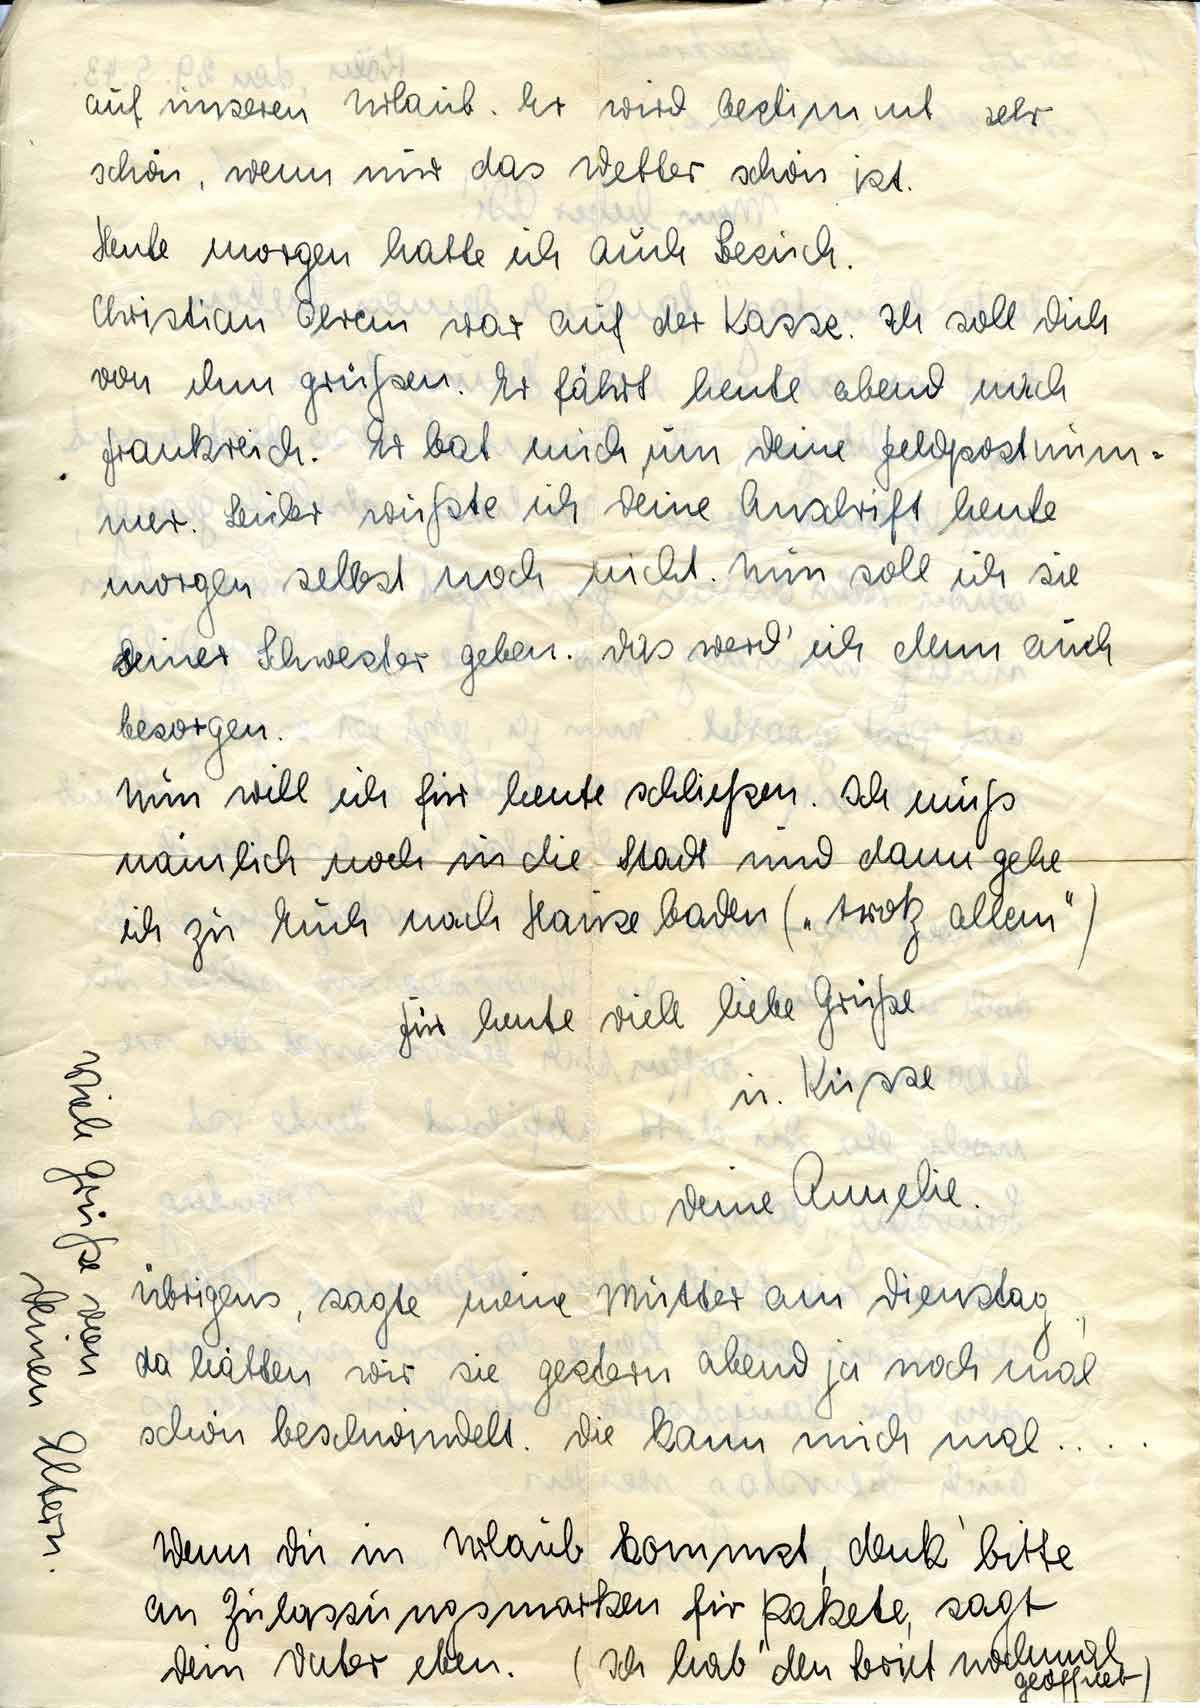 auf unseren Urlaub. Er wird bestimmt sehr
schön, wenn nur das Wetter schön ist.
Heute morgen hatte ich auch Besuch.
Christian war auf der Kasse. Ich soll Dich
von ihm grüßen. Er fährt heute abend nach
Frankreich. Er bat mich um Deine Feldpostnum-
mer. Leider wußte ich Deine Anschrift heute
morgen selbst noch nicht. Nun soll ich sie
seiner Schwester geben. Das werd' ich denn auch
besorgen.
Nun will ich für heute schließen. Ich muß
nämlich noch in die Stadt und dann gehe
ich zu Euch nach Hause baden („trotz allem")
Für heute viele liebe Grüße
u. Küsse
Deine Annelie.
Übrigens, sagte meine Mutter am Dienstag,
da hätten wir sie gestern abend ja noch mal
schön beschwindelt. Die kann mich mal.....
Wenn Du in Urlaub kommst, denk' bitte
an Zulassungsmarken für Pakete, sagt
Dein Vater eben. (Ich hab' den Brief nochmal
geöffnet)
Viele Grüße von
Deinen Eltern.